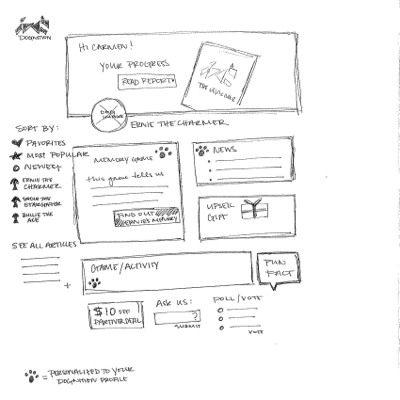 DOGNITION
HI CARMEN!
YOUR PROGRESS
READ REPORT
THE CHARMER
ERNIE THE CHARMER
SORT BY:
FAVORITES
MOST POPULAR
NEWEST
ERNIE THE
CHARMER
THE
STARGAZER
BILLIE THE
ACE
SEE ALL ARTICLES
MEMORY GAME
this game tells us
FIND OUT
ERNIE'S MEMORY
NEWS
UPSELL
GIFT
GAME/ACTIVITY
FUN
FACT
$10 OFF
PARTNER DEAL
ASK US:
?
SUBMIT
POLL/VOTE
VOTE
= PERSONALIZED TO YOUR
DOGNITION PROFILE